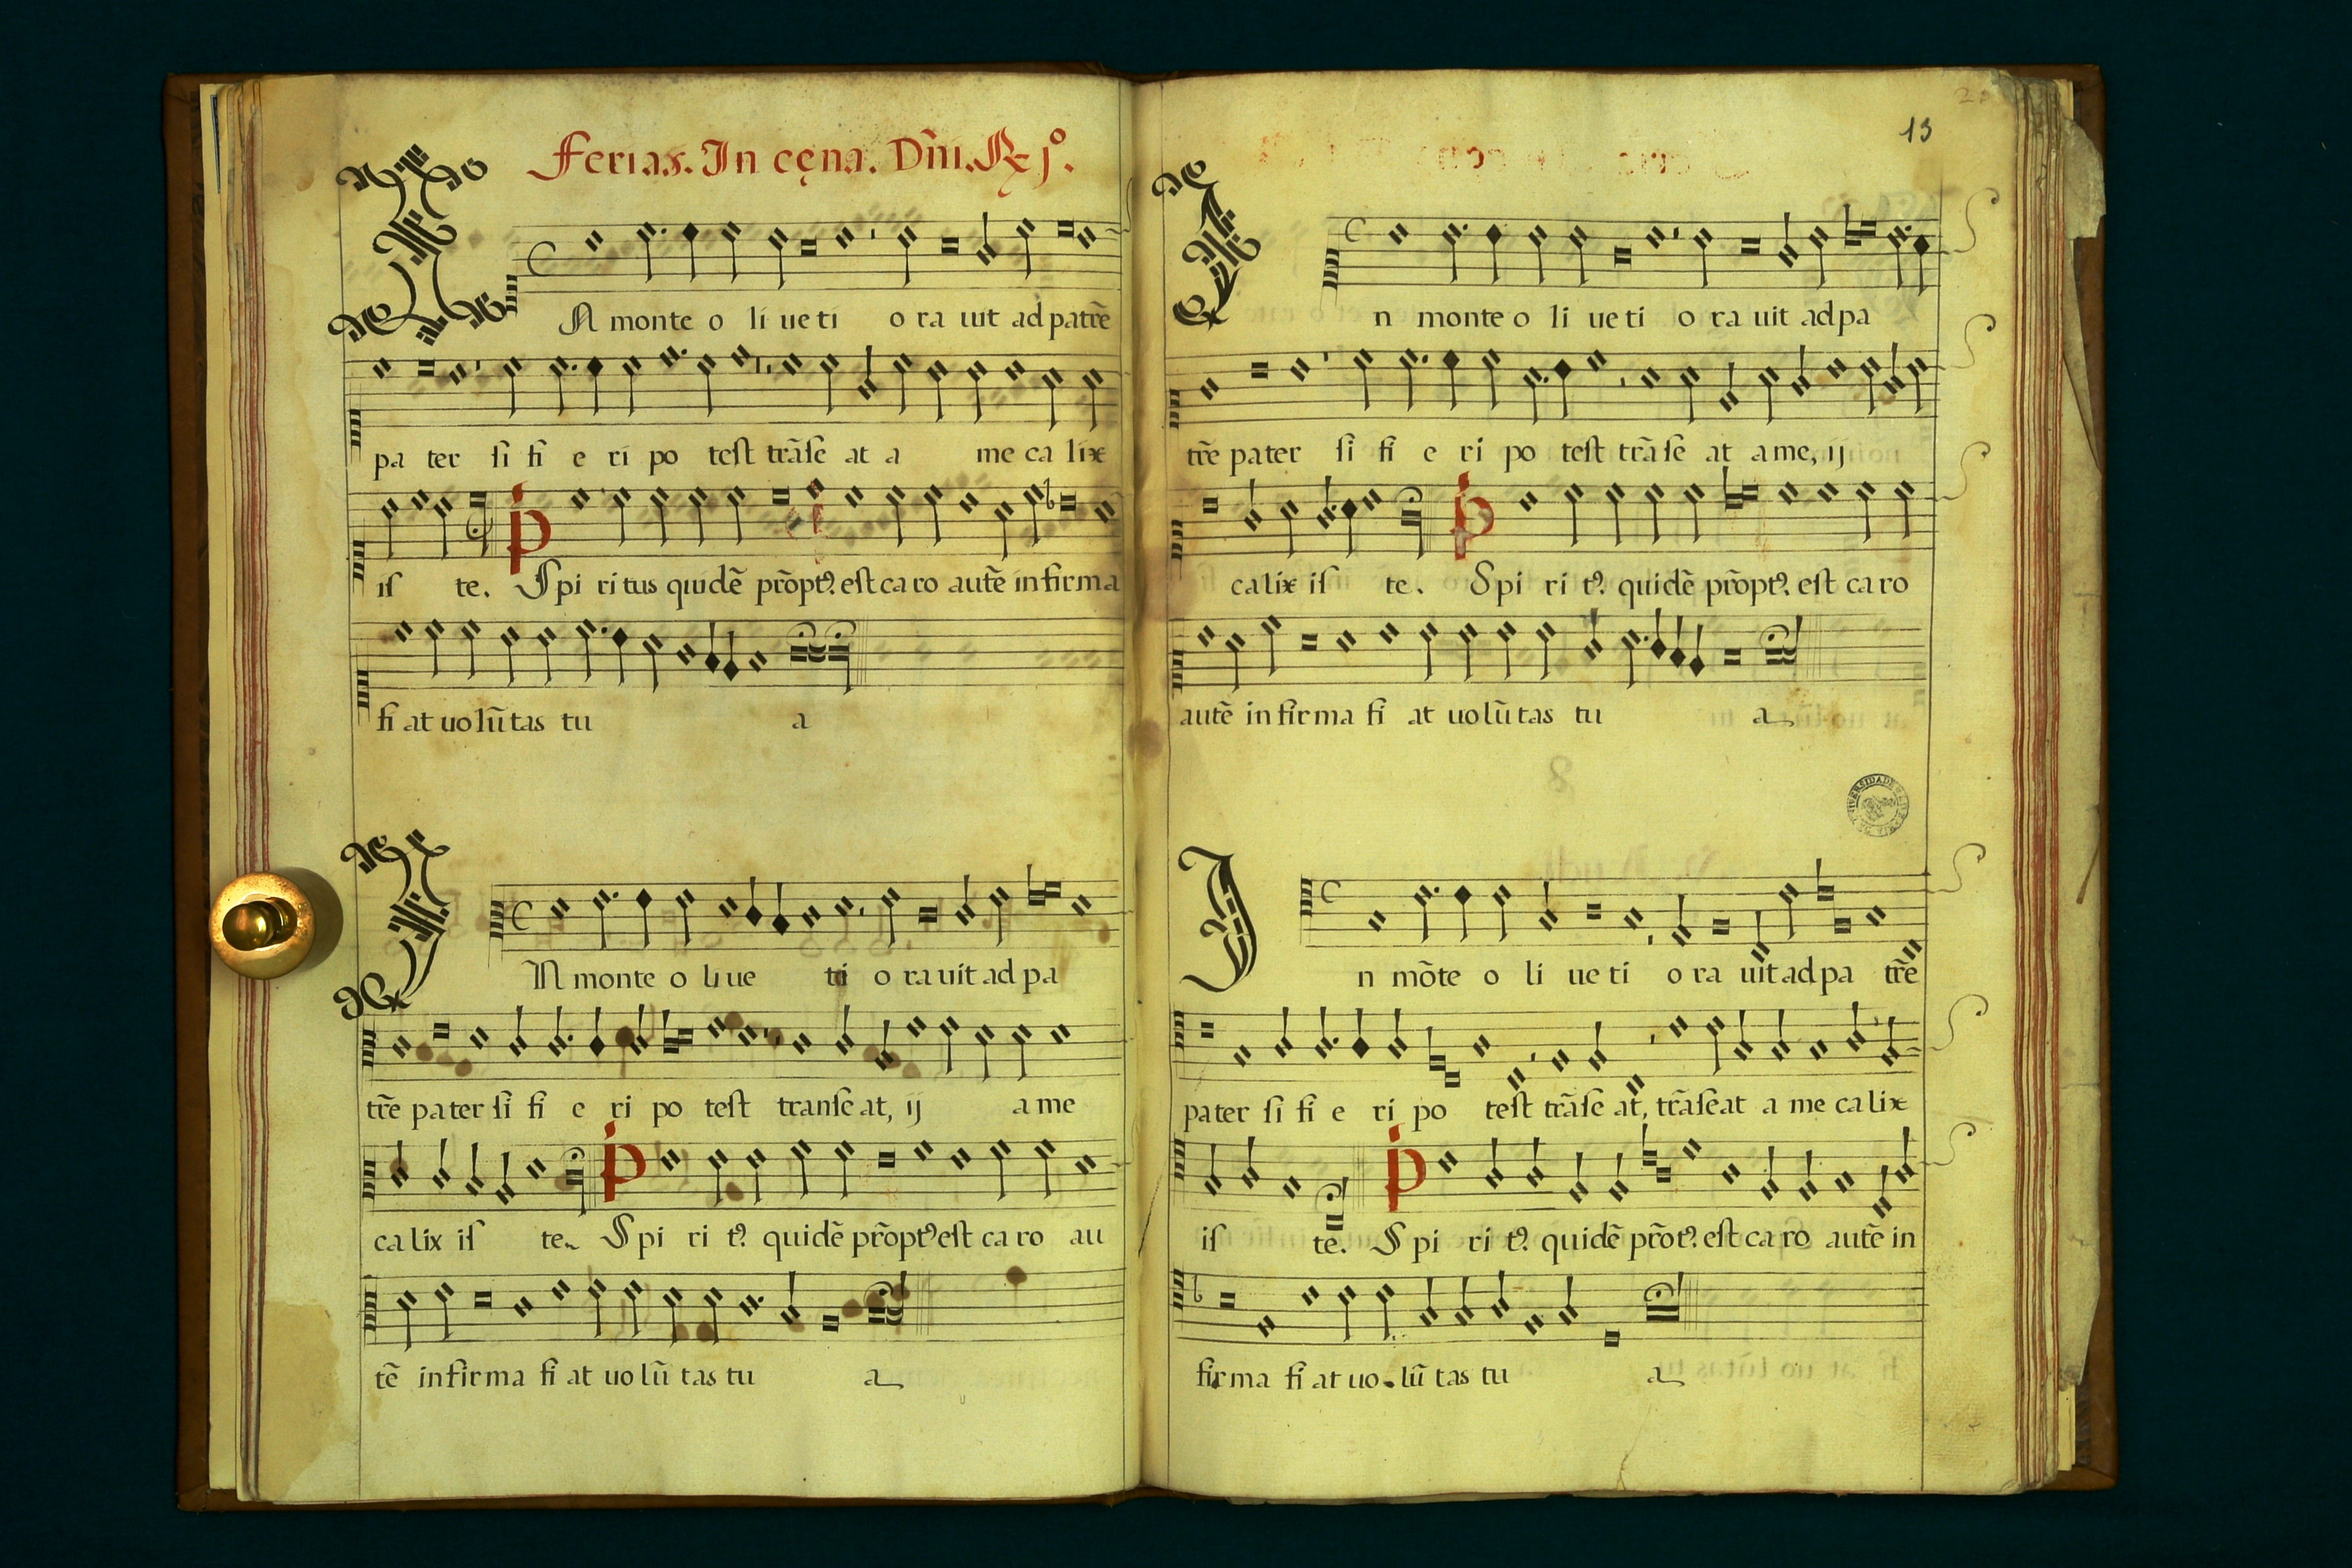 Ferias. In cęna. Dñi. Rx j.º
IN monte o li ue ti o ra uit ad patrẽ
pa ter si fi e ri po test trãse at a me ca lix
is te. Spi ri tus quidẽ prõptꝰ. est ca ro autẽ in firma
fi at uo lũ tas tu a
IN monte o li ue ti o ra uit ad pa
trẽ pa ter si fi e ri po test transe at, ij a me
ca lix is te. Spi ri tꝰ. quidẽ prõptꝰ est ca ro au
tẽ in fir ma fi at uo lũ tas tu a
13
In monte o li ue ti o ra uit ad pa
trẽ pa ter si fi e ri po test trãse at a me, ij
ca lix is te. Spi ri tꝰ. quidẽ prõptꝰ. est ca ro
autẽ in fir ma fi at uo lũ tas tu a
In mõte o li ue ti o ra uit ad pa trẽ
pater si fi e ri po test trãse at, trãseat a me ca lix
is te. Spi ri tꝰ. quidẽ prõtꝰ. est ca ro autẽ in
fir ma fi at uo. lũ tas tu a